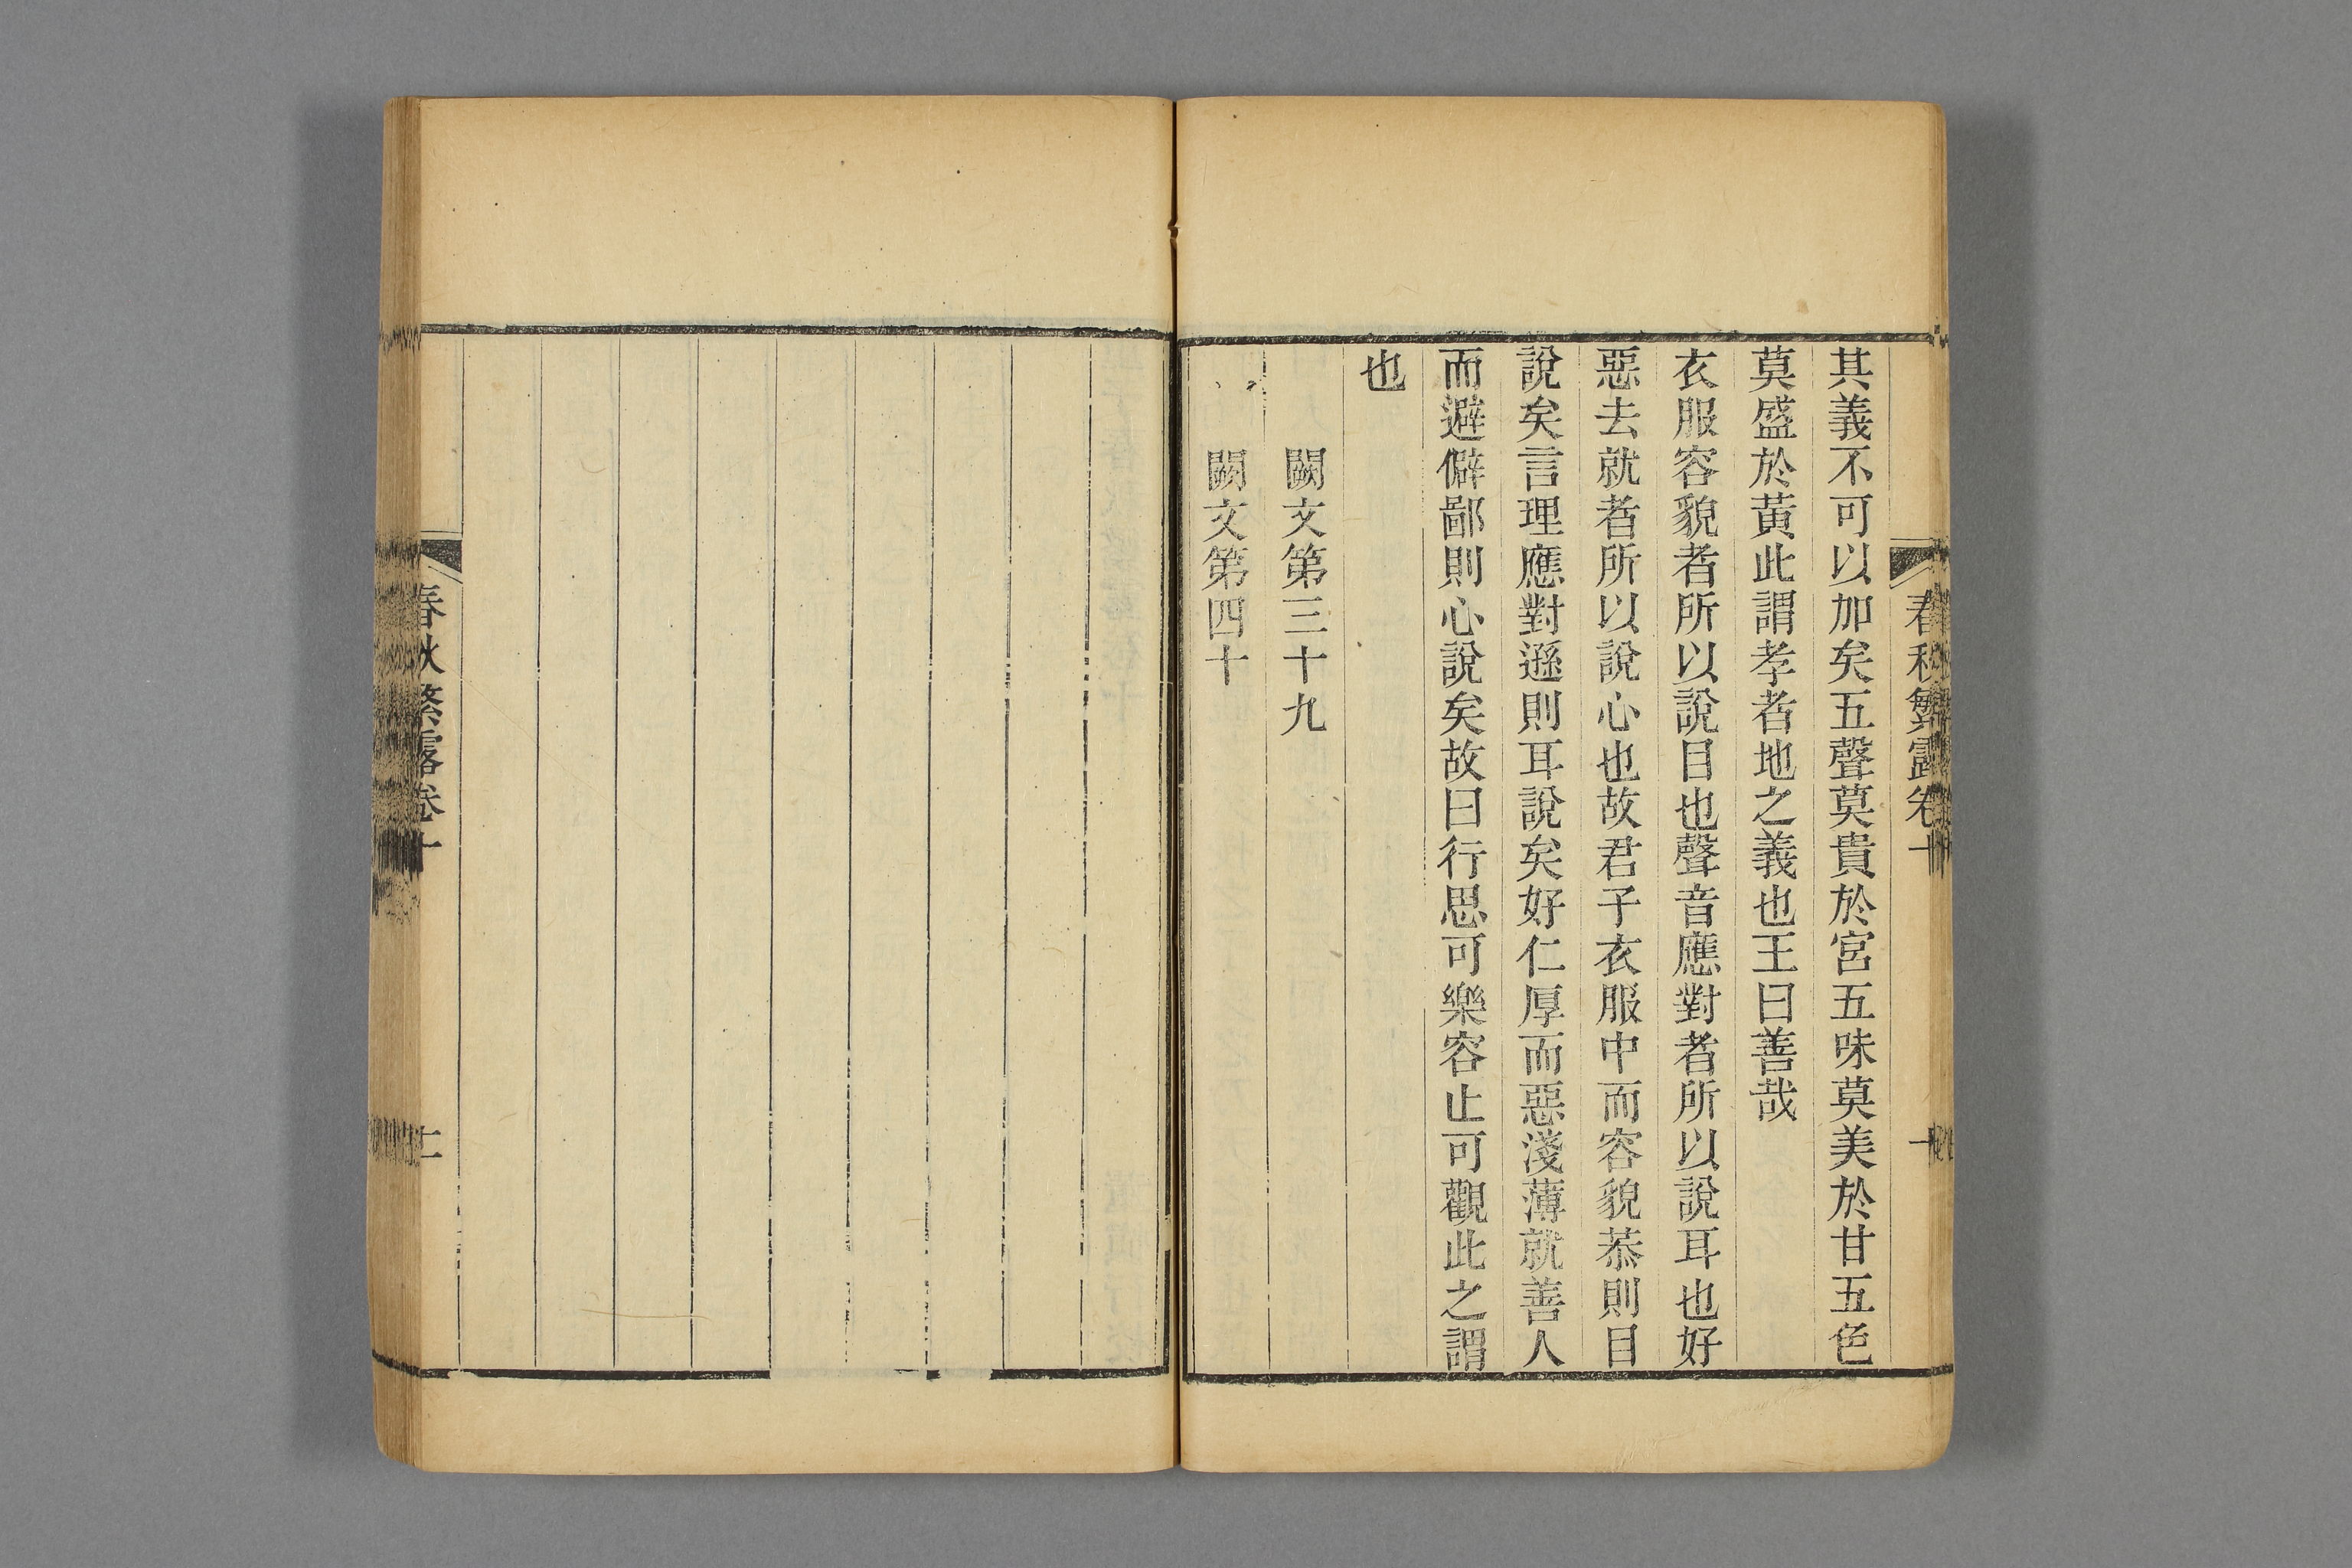 春秋繁露卷十
其義不可以加矣五聲莫貴於宮五味莫美於甘五色
莫盛於黃此謂孝者地之義也王曰善哉
衣服容貌者所以說目也聲音應對者所以說耳也好
惡去就者所以說心也故君子衣服中而容貌恭則目
說矣言理應對遜則耳說矣好仁厚而惡淺薄就善人
而避僻鄙則心說矣故曰行思可樂容止可觀此之謂
也
闕文第三十九
闕文第四十
春秋繁露卷十